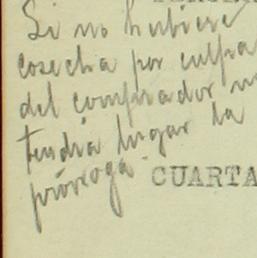 Si no hubiere
cosecha por culpa
del comprador no
tendrá lugar la
prórroga.
CUARTA